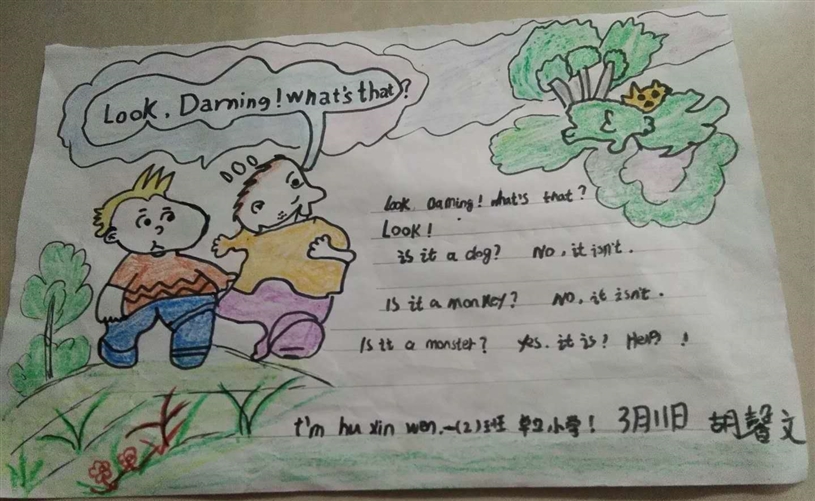 Look, Darning! what's that?
Look Daming! what's that?
LOOK!
is it a dog? No, it isn't.
Is it a monkey? No, it isn't.
Is it a monster? Yes. it is! Help!
I'm hu xin wen. 一(2)班 小学! 3月11日 胡馨文